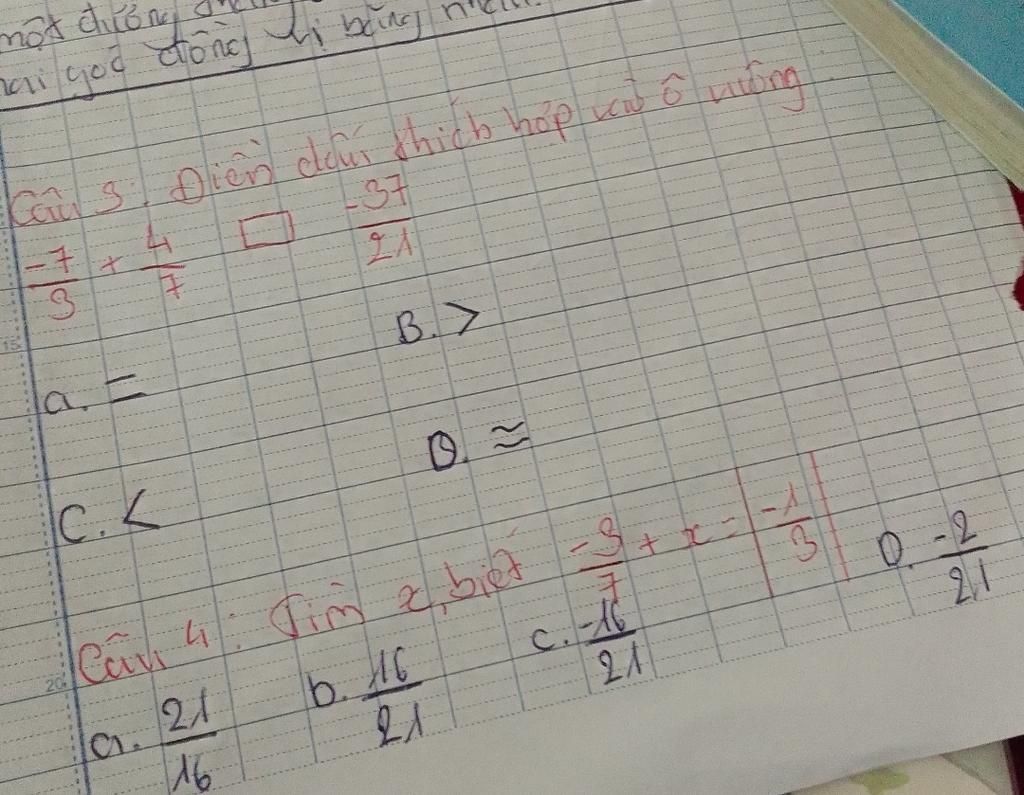 một chương
hai góc đồng vị bằng nhau.
Câu 3. Điền dấu thích hợp vào ô vuông
-7/3 + 4/7 □ -37/21
a. = B. >
C. < D. ≈
Câu 4: Tìm x, biết -3/7 + x = |-1/3|
a. 21/16 b. 16/21 c. -16/21 D. -2/21